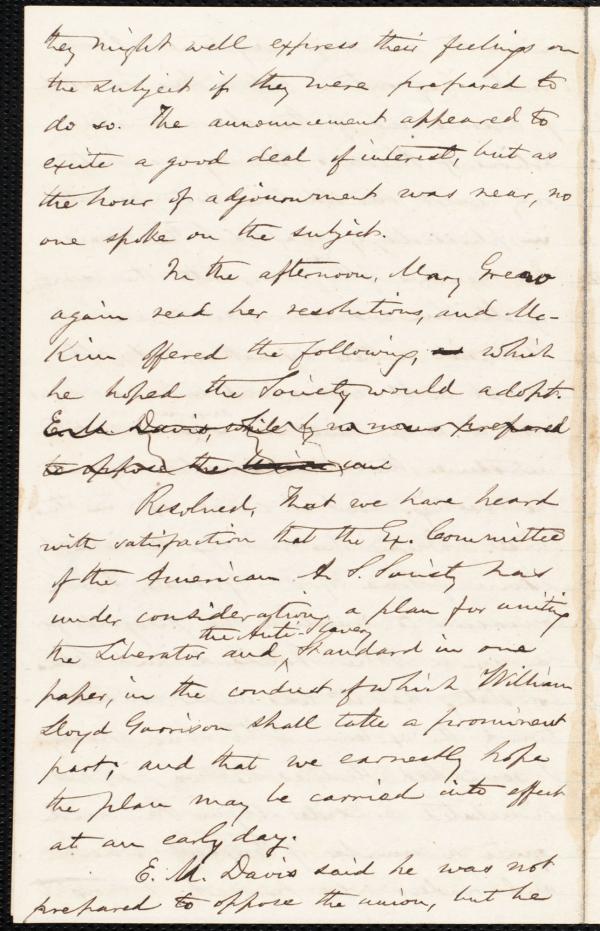 they might well express their feelings on
the subject if they were prepared to
do so. The announcement appeared to
excite a good deal of interest, but as
the hour of adjournment was near, no
one spoke on the subject.
In the afternoon, Mary Grew
again read her resolutions, and Mc-
Kim offered the following, which
he hoped the Society would adopt.
E. M. Davis, while by no means prepared
to oppose the union
Resolved, That we have heard
with satisfaction that the Ex. Committee
of the American A. S. Society has
under consideration a plan for uniting
the Anti-Slavery
the Liberator and ^ Standard in one
paper, in the conduct of which William
Lloyd Garrison shall take a prominent
part; and that we earnestly hope
the plan may be carried into effect
at an early day.
E. M. Davis said he was not
prepared to oppose the union, but he